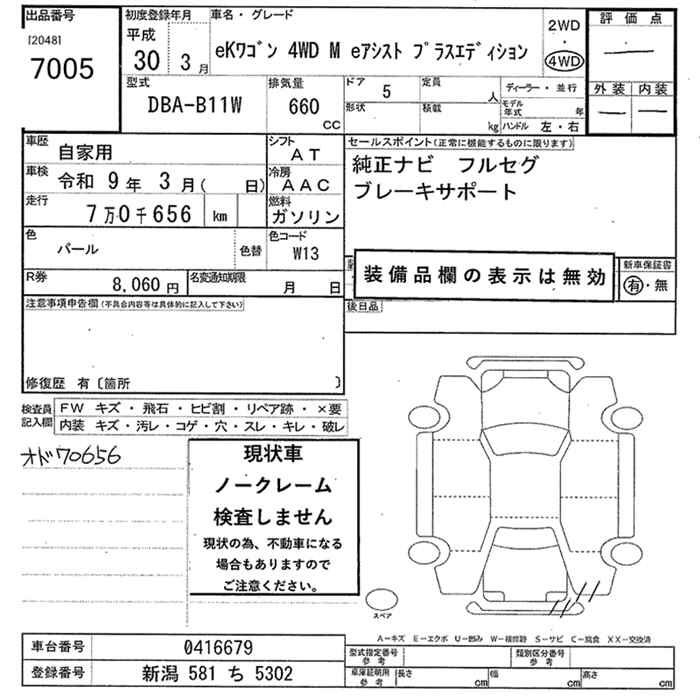 出品番号
[20481
7005
初度登録年月
平成
30 3月
車名・グレード
eKワゴン 4WD M eアシスト プラスエディション
2WD
・
4WD
評価点
外装 内装
型式
DBA-B11W
排気量
660
cc
ドア 5
形状
定員
人
積載
kg
ディーラー・並行
モデル年式 年
ハンドル 左・右
車歴 自家用
シフト AT
車検 令和 9年 3月( 日)
冷房 AAC
走行 7万0千656 km
燃料 ガソリン
色 パール 色替
色コード W13
R券 8,060円
名変通知期限 月 日
セールスポイント(正常に機能するものに限ります)
純正ナビ フルセグ
ブレーキサポート
装備品欄の表示は無効
新車保証書
有・無
後日品
注意事項申告欄(不具合内容等は具体的に記入して下さい)
修復歴 有〔箇所 〕
検査員記入欄
FW キズ・飛石・ヒビ割・リペア跡・×要
内装 キズ・汚レ・コゲ・穴・スレ・キレ・破レ
オド70656
現状車
ノークレーム
検査しません
現状の為、不動車になる
場合もありますので
ご注意ください。
スペア
A-キズ E-エクボ U-凹み W-補修跡 S-サビ C-腐食 XX-交換済
車台番号 0416679
登録番号 新潟 581 ち 5302
型式指定番号 参考
類別区分番号 参考
車庫証明用 参考
長さ cm
幅 cm
高さ cm